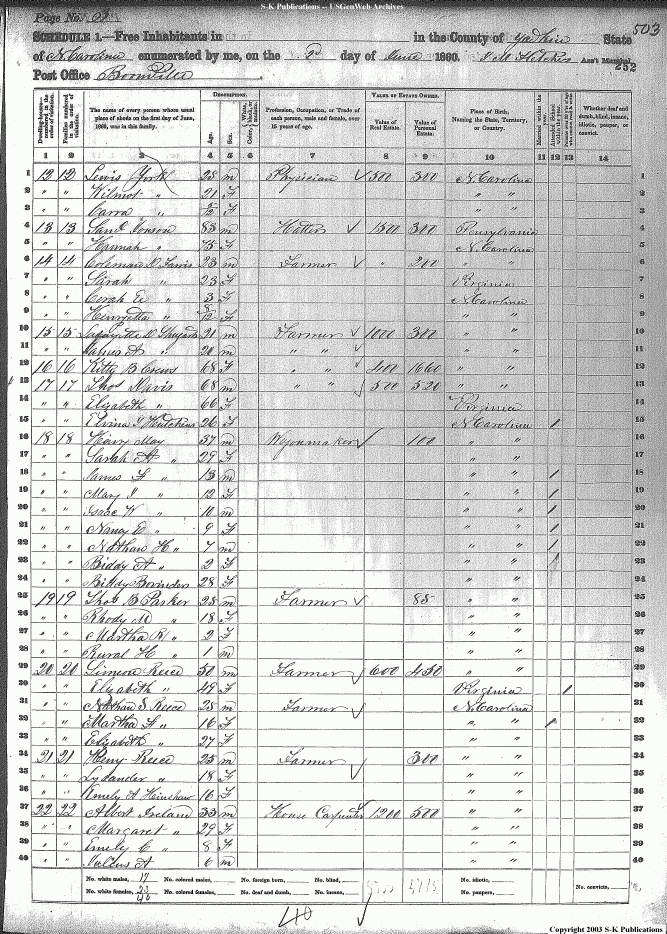 S-K Publications -- USGenWeb Archives
Page No. 503
SCHEDULE 1.—Free Inhabitants in in the County of Yadkin State
of N. Carolina enumerated by me, on the 2d day of June 1860. Ass't Marshal
252
Post Office Boonville
Dwelling-houses— numbered in the order of visitation. Families numbered in the order of visitation. The name of every person whose usual place of abode on the first day of June, 1860, was in this family. DESCRIPTION. Age. Sex. Color Profession, Occupation, or Trade of each person, male and female, over 15 years of age. VALUE OF ESTATE OWNED. Value of Real Estate. Value of Personal Estate. Place of Birth, Naming the State, Territory, or Country. Married within the year. Attended School within the year. Whether deaf and dumb, blind, insane, idiotic, pauper, or convict.
1 2 3 4 5 6 7 8 9 10 11 12 13 14
1 12 12 Lewis York 28 m Physician 500 300 N. Carolina 1
2 " " Wilmot " 21 F " " 2
3 " " Carra " /12 F " " 3
4 13 13 83 m Hatter 1500 300 Pensylvania 4
5 " " Hannah " 75 F N. Carolina 5
6 14 14 Coleman D 23 m Farmer " 200 " " 6
7 " " Sarah " 23 F Virginia 7
8 " " " 3 F N Carolina 8
9 " " Henryetta " /12 F " " 9
10 15 15 Lafayette D 21 m Farmer 1000 300 " " 10
11 " " James A " 20 m " " " " 11
12 16 16 Kitty B Crews 68 F " " 400 1660 " " 12
13 17 17 Thos Davis 68 m " " 500 520 " " 13
14 " " Elizabeth " 66 F Virginia 14
15 " " Elvina J Hutchins 26 F N Carolina 1 15
16 18 18 Henry May 37 m Wagonmaker 100 " " 16
17 " " Sarah A " 29 F " " 17
18 " " James F " 13 m " " 1 18
19 " " Mary J " 12 F " " 1 19
20 " " Isaac W " 10 m " " 1 20
21 " " Nancy E " 9 F " " 1 21
22 " " Nathan H " 7 m " " 1 22
23 " " Biddy A " 2 F " " 23
24 " " Biddy 28 F " " 24
25 19 19 Thos B Parker 25 m Farmer 85 " " 25
26 " " Rhody M " 18 F " " 26
27 " " Martha R " 2 F " " 27
28 " " Rural H " 1 m " " 28
29 20 20 Simeon Reece 50 m Farmer 600 450 " " 29
30 " " Elizabeth " 48 F Virginia 1 30
31 " " Nathan S. Reece 28 m Farmer N. Carolina 31
32 " " Martha F " 16 F " " 1 32
33 " " Elizabeth " 27 F " " 33
34 21 21 Heny Reece 25 m Farmer 300 " " 34
35 " " Lysander " 18 F " " 35
36 " " Emely A Hinshaw 16 F " " 36
37 22 22 Albert Ireland 33 m House Carpenter 1200 500 " " 37
38 " " Margaret " 29 F " " 38
39 " " Emely C " 8 F " " 39
40 " " A 6 m " " 40
No. white males, 17 No. colored males, No. foreign born, No. blind, No. idiotic,
No. white females, 23 No. colored females, No. deaf and dumb, No. insane, No. paupers, No. convicts,
40
40
Copyright 2003 S-K Publications